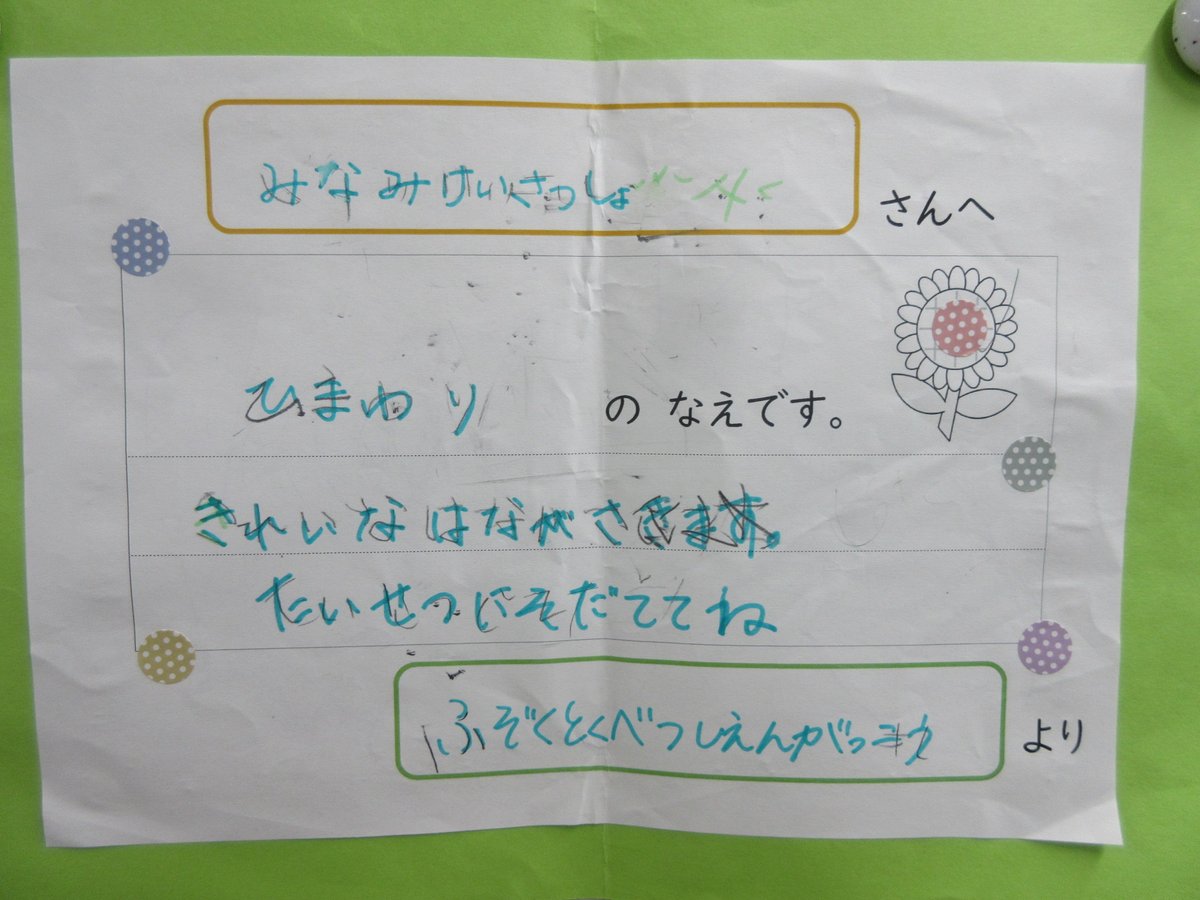 みなみけいさつしょ さんへ
ひまわり の なえです。
きれいなはながさきます。
たいせつにそだててね
ふぞくとくべつしえんがっこう より